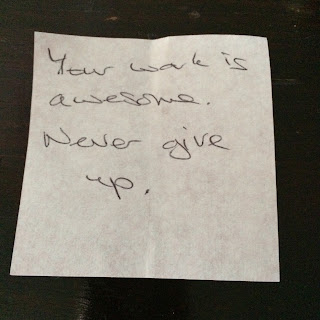 Your work is
awesome.
Never give
up.